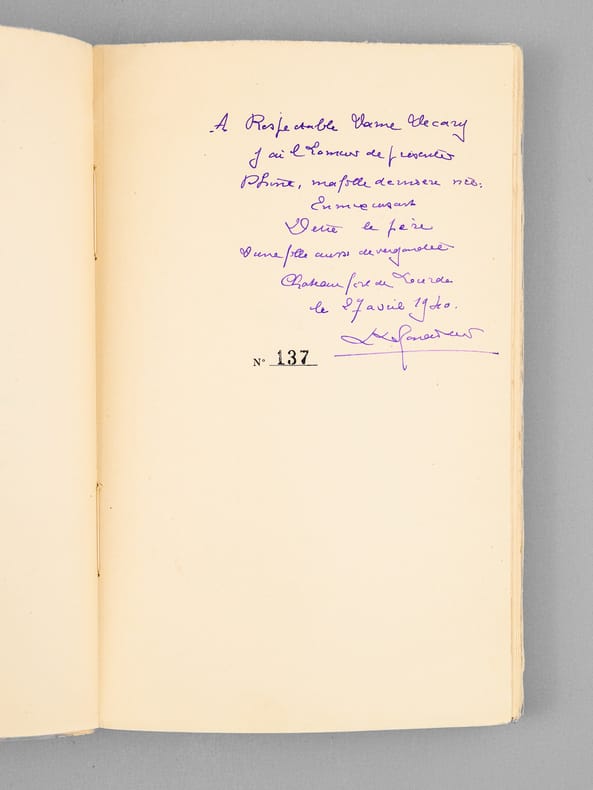 A Respectable Dame Decary
J'ai l'honneur de présenter
Phiné, ma fille dernière née.
En m'excusant
D'être le père
D'une fille aussi dévergondée
Chateau fort de Lourdes
le 27 avril 1940.
N° 137